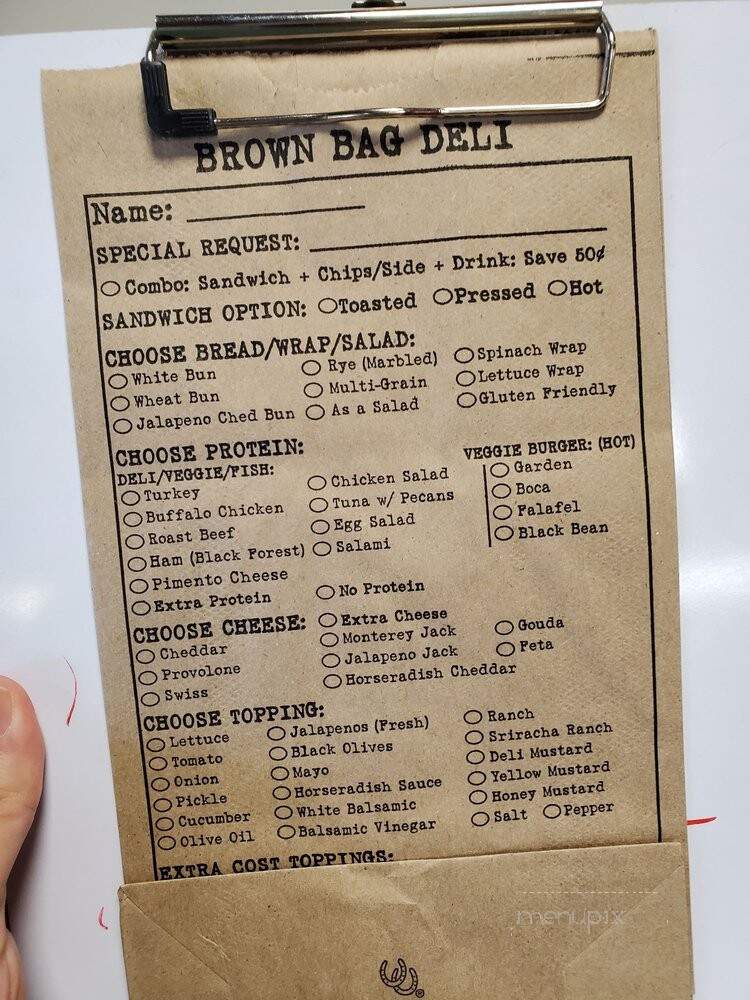 BROWN BAG DELI
Name:
SPECIAL REQUEST:
Combo: Sandwich + Chips/Side + Drink: Save 50¢
SANDWICH OPTION: Toasted Pressed Hot
CHOOSE BREAD/WRAP/SALAD:
White Bun
Wheat Bun
Jalapeno Ched Bun
Rye (Marbled)
Multi-Grain
As a Salad
Spinach Wrap
Lettuce Wrap
Gluten Friendly
CHOOSE PROTEIN:
DELI/VEGGIE/FISH:
Turkey
Buffalo Chicken
Roast Beef
Ham (Black Forest)
Pimento Cheese
Extra Protein
Chicken Salad
Tuna w/ Pecans
Egg Salad
Salami
No Protein
VEGGIE BURGER: (HOT)
Garden
Boca
Falafel
Black Bean
CHOOSE CHEESE:
Cheddar
Provolone
Swiss
Extra Cheese
Monterey Jack
Jalapeno Jack
Horseradish Cheddar
Gouda
Feta
CHOOSE TOPPING:
Lettuce
Tomato
Onion
Pickle
Cucumber
Olive Oil
Jalapenos (Fresh)
Black Olives
Mayo
Horseradish Sauce
White Balsamic
Balsamic Vinegar
Ranch
Sriracha Ranch
Deli Mustard
Yellow Mustard
Honey Mustard
Salt Pepper
EXTRA COST TOPPINGS:
menupix